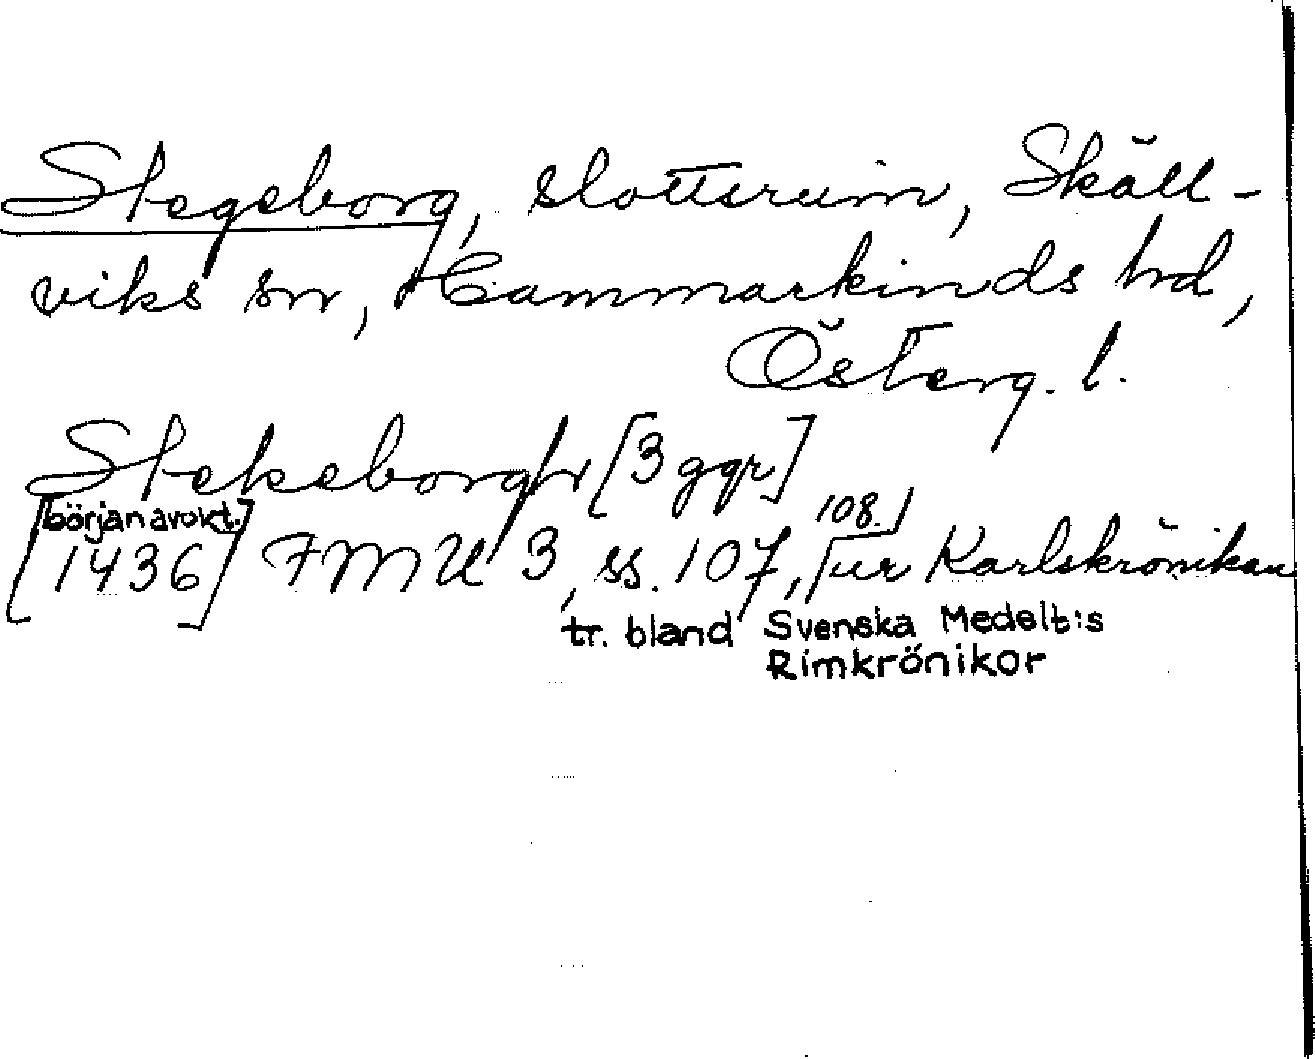 Stegeborg, slottsruin, Skäll-
viks sn, Hammarkinds hd,
Österg. l.
Stekeborgh [3 ggr]
[början av okt.]
[1436] FMU 3, ss. 107, 108.] [ur Karlskrönikan
tr. bland Svenska Medelt:s
Rimkrönikor